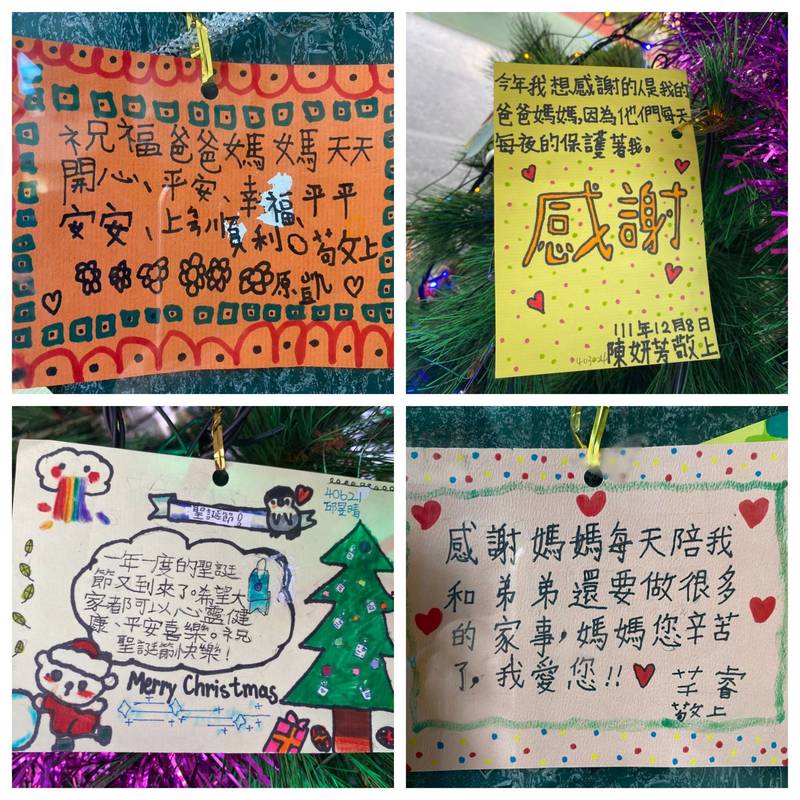 祝福爸爸媽媽天天
開心、平安、幸福、平平
安安、上學順利。敬上
原凱
今年我想感謝的人是我的
爸爸媽媽,因為他們每天
每夜的保護著我。
感謝
111年12月8日
陳妍芳敬上
聖誕節
40621
邱旻晴
一年一度的聖誕
節又到來了。希望大
家都可以心靈健
康、平安喜樂。祝
聖誕節快樂!
Merry Christmas
感謝媽媽每天陪我
和弟弟還要做很多
的家事,媽媽您辛苦
了,我愛您!!
芊睿
敬上